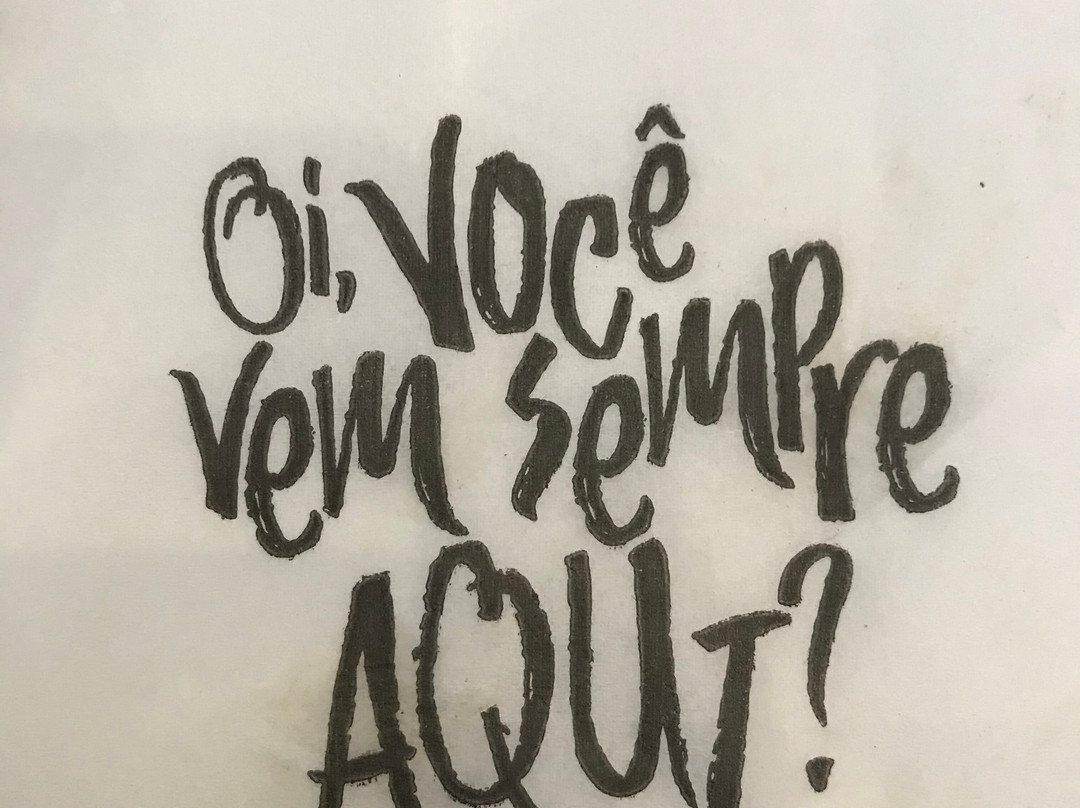 Oi, você
vem sempre
AQUI?